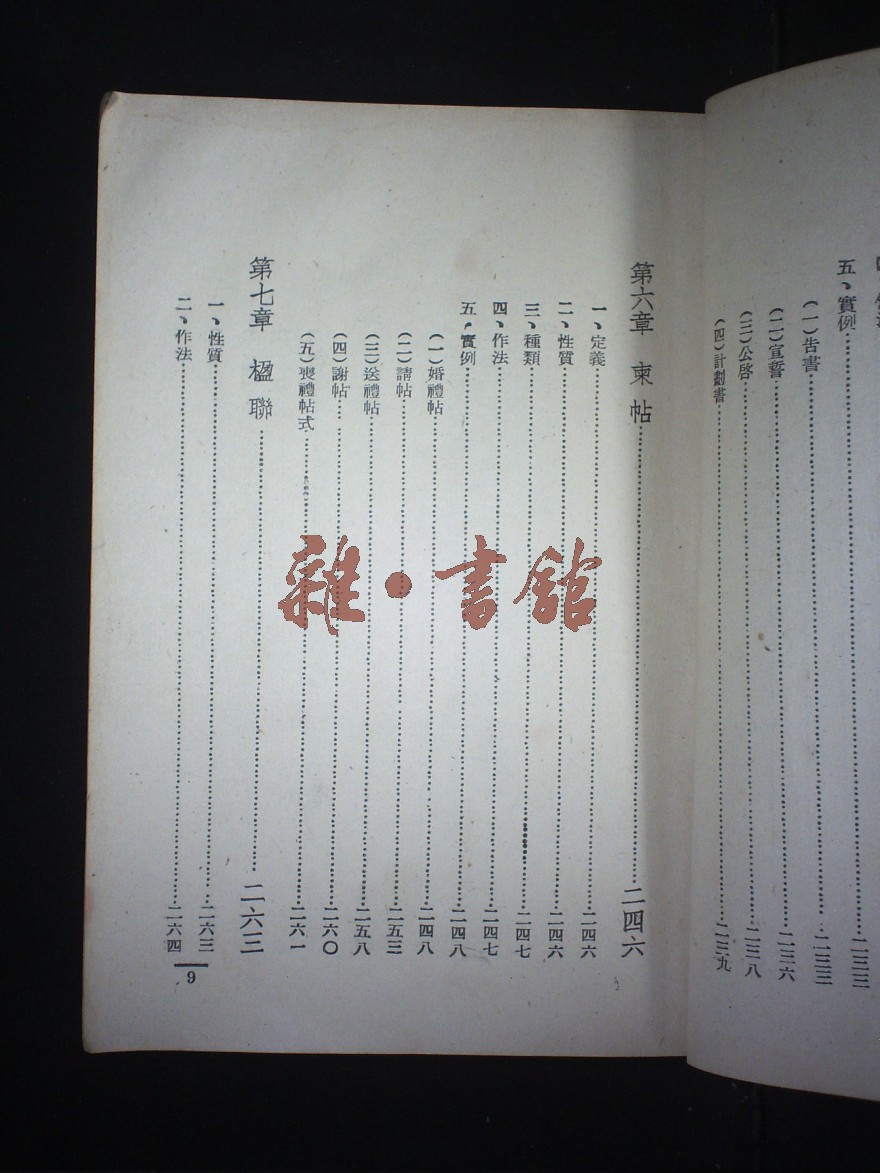 五、實例……二三三
(一)告書……二三三
(二)宣誓……二三六
(三)公啓……二三八
(四)計劃書……二三九
第六章 柬帖……二四六
一、定義……二四六
二、性質……二四六
三、種類……二四七
四、作法……二四七
五、實例……二四八
(一)婚禮帖……二四八
(二)請帖……二五三
(三)送禮帖……二五八
(四)謝帖……二六〇
(五)喪禮帖式……二六一
第七章 楹聯……二六三
一、性質……二六三
二、作法……二六四
9
雜·書館